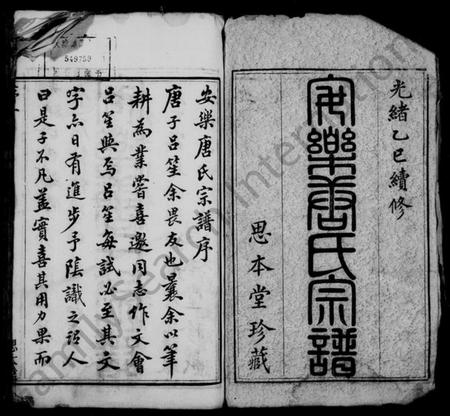 光緒乙巳續修
安樂唐氏宗譜
思本堂珍藏
安樂唐氏宗譜序
唐子呂笙余畏友也曩余以筆
耕為業嘗喜邀同志作文會
呂笙與焉呂笙每試必至其文
字亦日有進步予陰識之語人
曰是子不凡蓋實喜其用力果而
549759
FamilySearch International